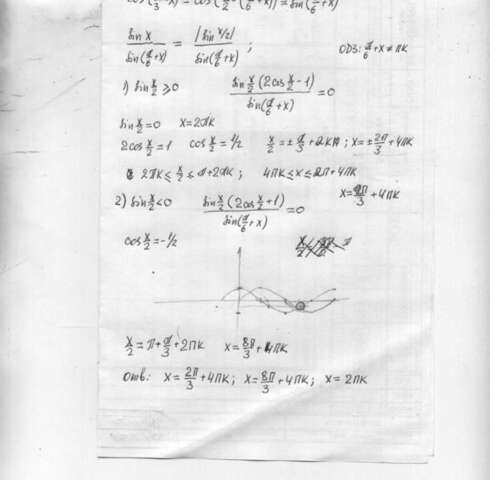 cos(π/3 - x) = cos(π/2 - (π/6 + x)) = sin(π/6 + x)
sin x / sin(π/6 + x) = |sin x/2| / sin(π/6 + x) ; ОДЗ: π/6 + x ≠ πк
1) sin x/2 ≥ 0 sin x/2 (2cos x/2 - 1) / sin(π/6 + x) = 0
sin x/2 = 0 x = 2πк
2cos x/2 = 1 cos x/2 = 1/2 x/2 = ± π/3 + 2кπ ; x = ± 2π/3 + 4πк
2πк ≤ x/2 ≤ π + 2πк ; 4πк ≤ x ≤ 2π + 4πк
x = 2π/3 + 4πк
2) sin x/2 < 0 sin x/2 (2cos x/2 + 1) / sin(π/6 + x) = 0
cos x/2 = -1/2
x/2 = π + π/3 + 2πк x = 8π/3 + 4πк
Отв: x = 2π/3 + 4πк ; x = 8π/3 + 4πк ; x = 2πк